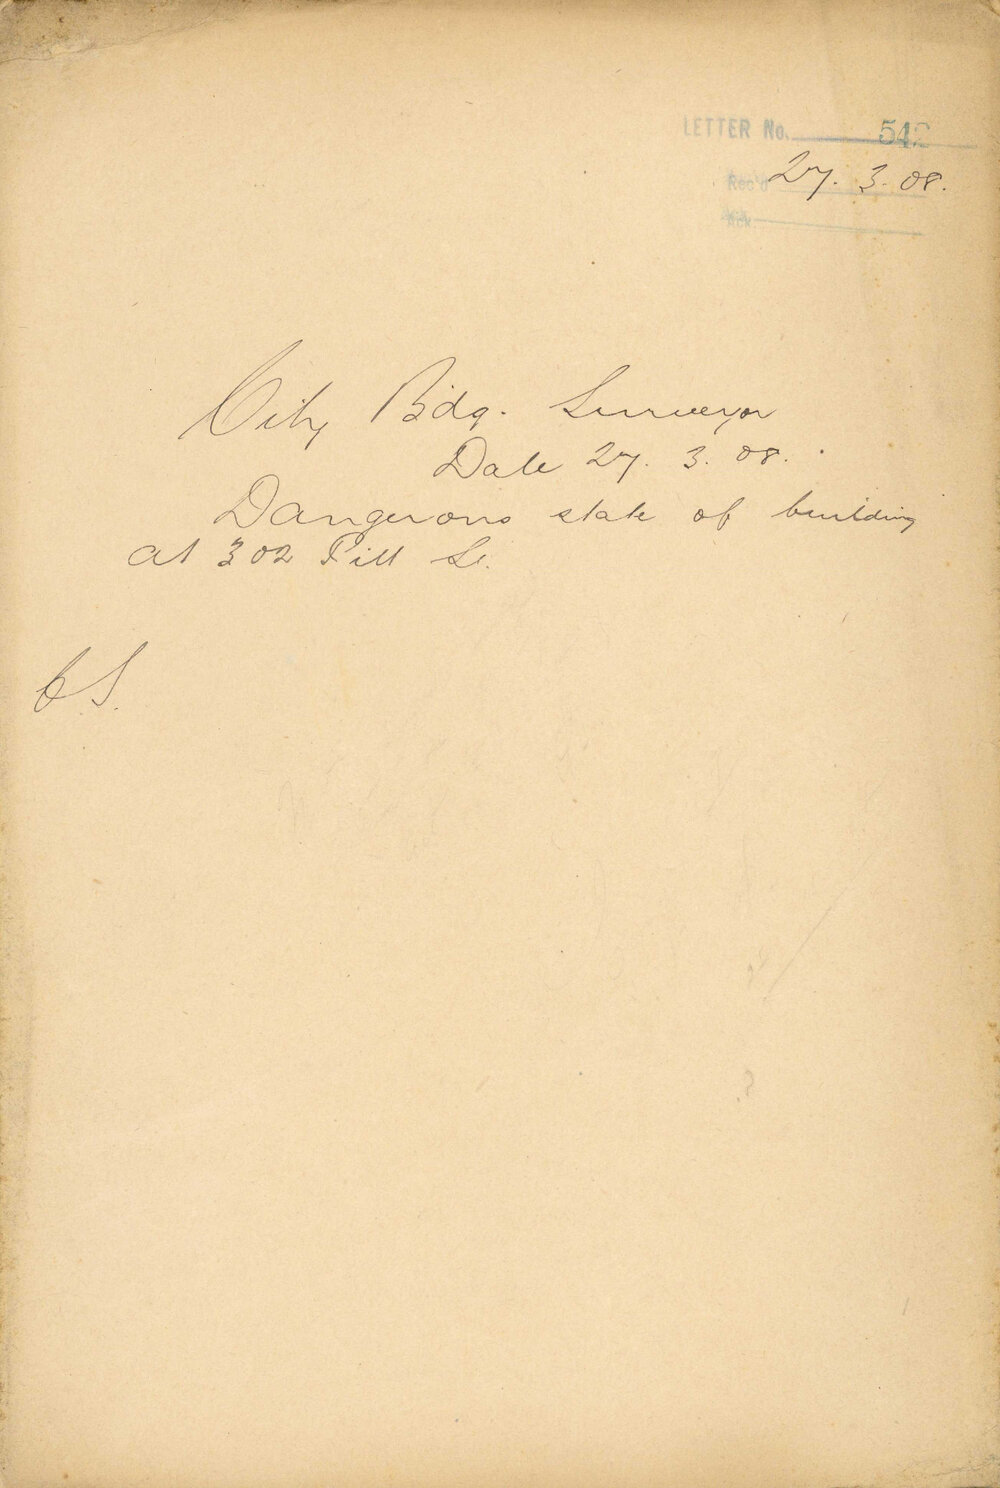 LETTER No. 542
Rec'd 27. 3. 08.
Ack.
City Bdg. Surveyor
Date 27. 3. 08.
Dangerous state of building
at 302 Pitt St.
C S.